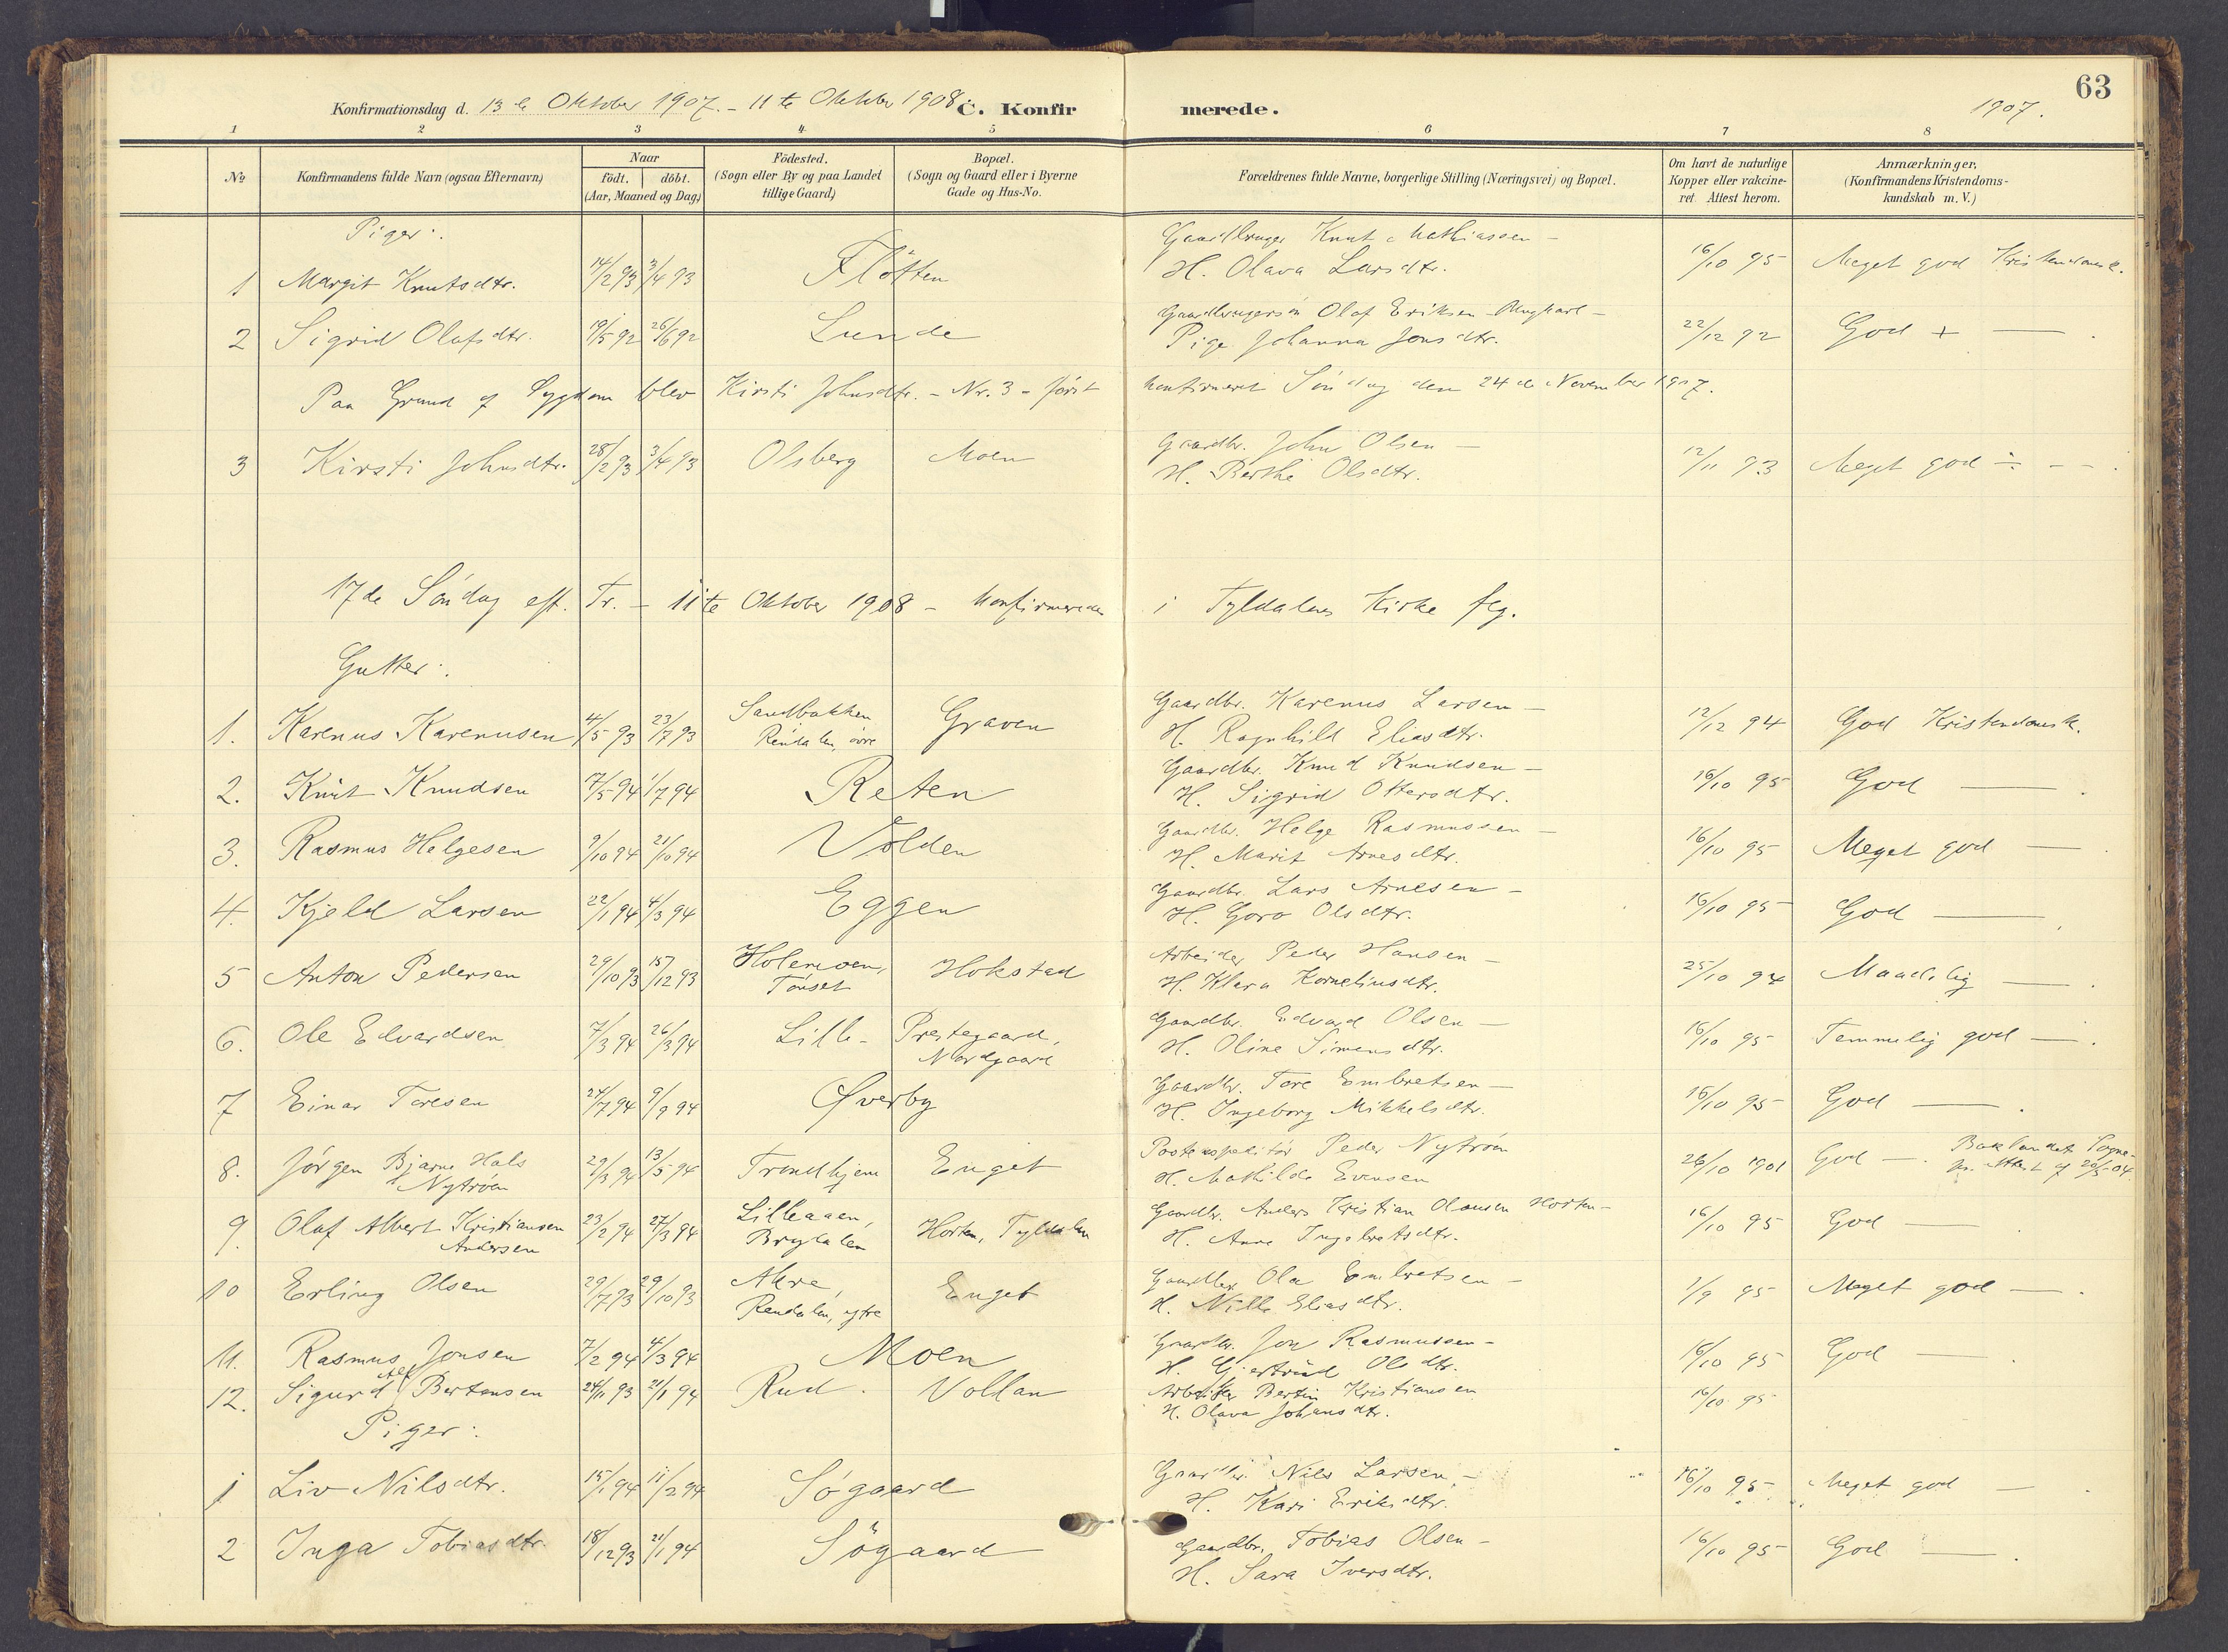 63
Konfirmationsdag d. 13de Oktober 1907. - 11te Oktober 1908. C. Konfirmerede. 1907.
1 2 3 4 5 6 7 8
No Konfirmandens fulde Navn (ogsaa Efternavn) Naar födt. döbt. (Aar, Maaned og Dag.) Födested. (Sogn eller By og paa Landet tillige Gaard.) Bopæl. (Sogn og Gaard eller i Byerne Gade og Hus-No. Forældrenes fulde Navne, borgerlige Stilling (Næringsvei) og Bopæl. Om havt de naturlige Kopper eller vakcineret. Attest herom. Anmærkninger. (Konfirmandens Kristendomskundskab m. V.)
Piger:
1 Margit Knutsdtr. 14/2 93 3/4 93 Flötten Gaardbruger Knut Mathiassen - H. Olava Larsdtr. 16/10 95 Meget god Kristendomsk.
2 Sigrid Olafsdtr. 19/5 92 26/6 92 Lunde Gaardbrugersön Olaf Eriksen Ungkarl - Pige Johanna Jonsdtr. 22/12 92 God + —
Paa Grund af Sygdom blev Kirsti Johnsdtr. - Nr. 3 - först konfirmeret Söndag den 24de November 1907.
3 Kirsti Johnsdtr. 28/2 93 3/4 93 Olsberg Moen Gaardbr. John Olsen - H. Berthe Olsdtr. 12/11 93 Meget god ÷ - -
17de Söndag eft. Tr. - 11te Oktober 1908 - konfirmeredes i Tyldalens Kirke flg.
Gutter:
1. Karenus Karenusen 4/5 93 23/7 93 Sandbakken Rendalen, övre Graven Gaardbr. Karenus Larsen - H. Ragnhild Eliasdtr. 12/12 94 God Kristendomsk.
2. Knut Knudsen 7/5 94 1/7 94 Reten Gaardbr. Knud Knudsen - H. Sigrid Ottersdtr. 16/10 95 God —
3. Rasmus Helgesen 9/10 94 21/10 94 Volden Gaardbr. Helge Rasmussen - H. Marit Arnesdtr. 16/10 95 Meget god —
4. Kjeld Larsen 22/1 94 4/3 94 Eggen Gaardbr. Lars Arnesen - H. Goro Olsdtr. 16/10 95 God —
5 Anton Pedersen 29/10 93 15/12 93 Holenmoen, Tönset Hokstad Arbeider Peder Hansen - H. Klara Korneliusdtr. 25/10 94 Maadelig —
6. Ole Edvardsen 7/3 94 26/3 94 Lille- Prestegaard, Nordgaard Gaardbr. Edvard Olsen - H. Oline Simensdtr. 16/10 95 Temmelig god —
7 Einar Toresen 24/7 94 9/9 94 Øverby Gaardbr. Tore Embretsen - H. Ingeborg Mikkelsdtr. 16/10 95 God —
8. Jörgen Bjarne Hals Nytröen 29/3 94 13/5 94 Trondhjem Enget Postexpeditör Peder Nytröen H. Mathilde Evensen 26/10 1901 God —. Baklandets Sogne- Attest af 20/5 04.
9. Olaf Albert Kristiansen Andersen 23/2 94 27/3 94 Lilleaaen, Brydalen Horten, Tyldalen Gaardbr. Anders Kristian Olausen Horten - H. Anne Ingebretsdtr. 16/10 95 God —
10 Erling Olsen 29/7 93 29/10 93 Akre, Rendalen, ytre Enget Gaardbr. Ola Embretsen - H. Nille Eliasdtr. 1/9 95 Meget god —
11. Rasmus Jonsen 7/2 94 4/3 94 Moen Gaardbr. Jon Rasmussen - H. Gjertrud Olsdtr. 16/10 95 God —
12. Sigurd Alf Bertensen 24/11 93 21/1 94 Rud. Vollan Arbeider Bertin Kristiansen H. Olava Johansdtr. 16/10 95
Piger:
1 Liv Nilsdtr. 15/1 94 11/2 94 Sögaard Gaardbr. Nils Larsen - H. Kari Eriksdtr. 16/10 95 Meget god —
2 Inga Tobiasdtr. 18/12 93 21/1 94 Sögaard Gaardbr. Tobias Olsen - H. Sara Iversdtr. 16/10 95 God —